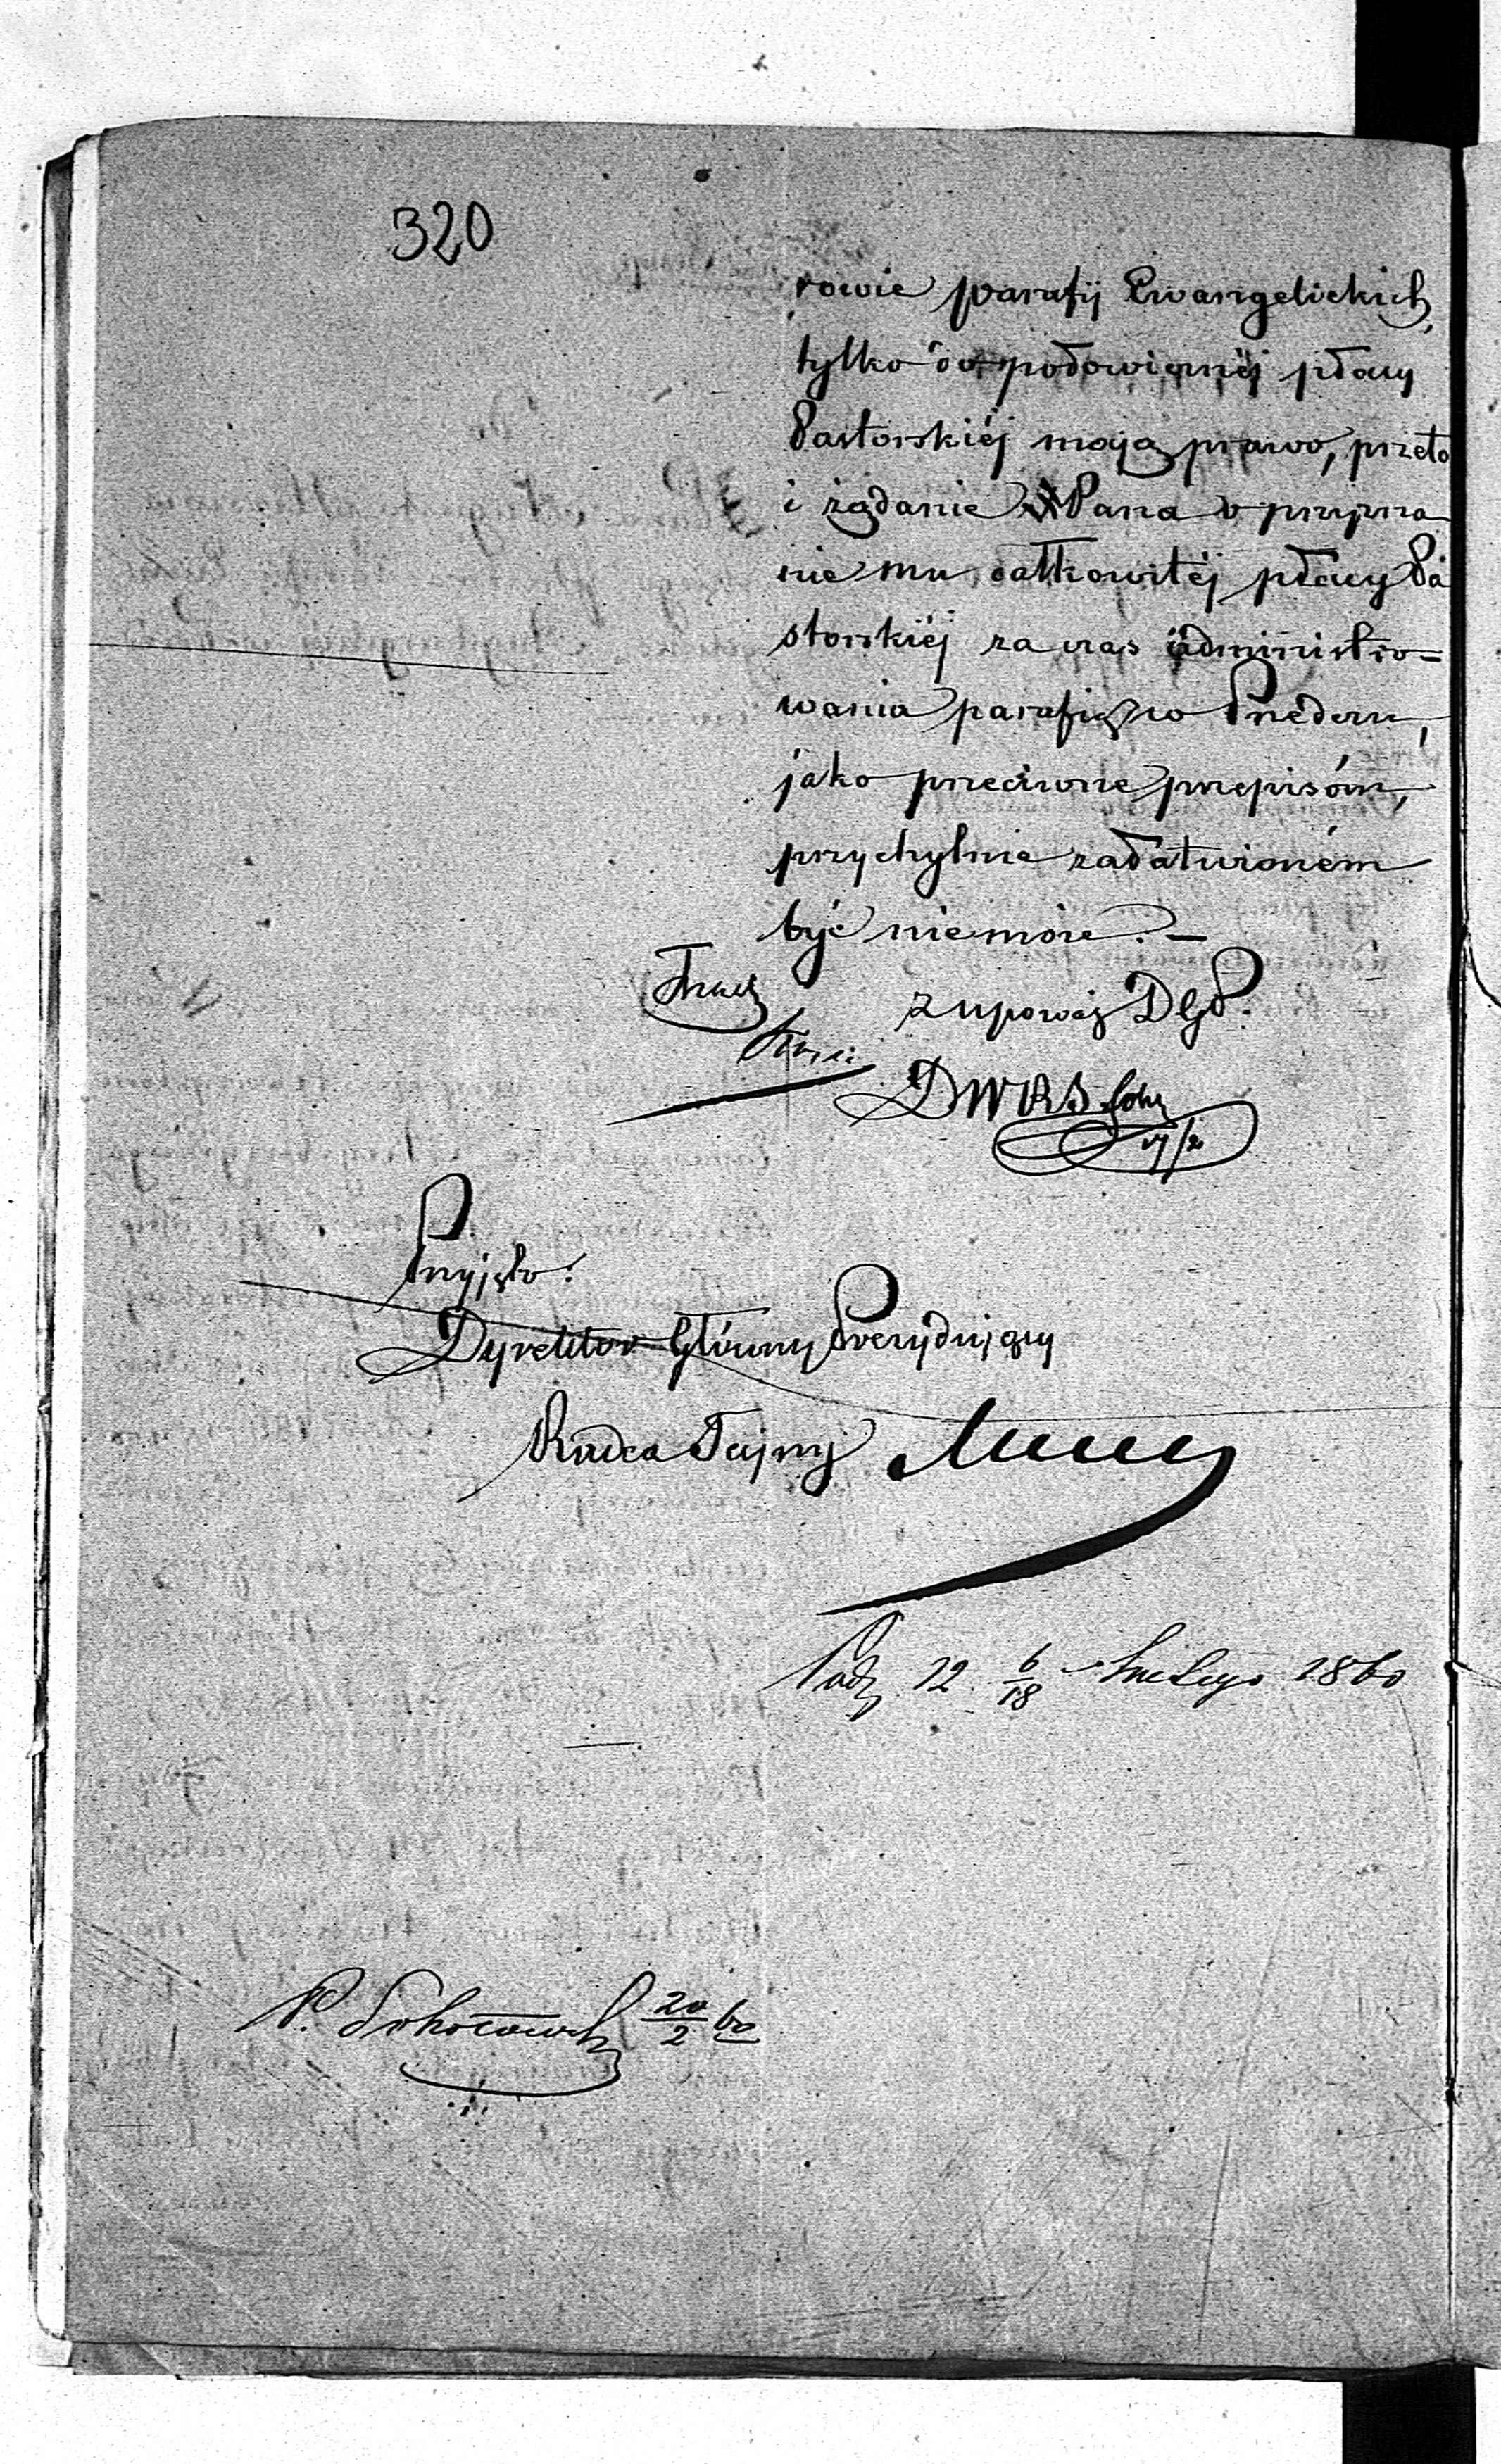 320
rowie parafij Ewangelickich,
tylko do połowicznéj płacy
Pastorskiéj mają prawo, przeto
i żądanie Pana o przyzna
nie mu całkowitéj płacy Pa
storskiéj za czas administro-
wania parafią w Przedczu,
jako przeciwne przepisom,
przychylnie załatwioném
być niemoże. —
z upoważ DGP.
DWRS
17/2
Przyjęto:
Dyrektor Główny Prezydujący
Radca Tajny
12 6/18 Lutego 1860
P. Sokołowski 20/2 60